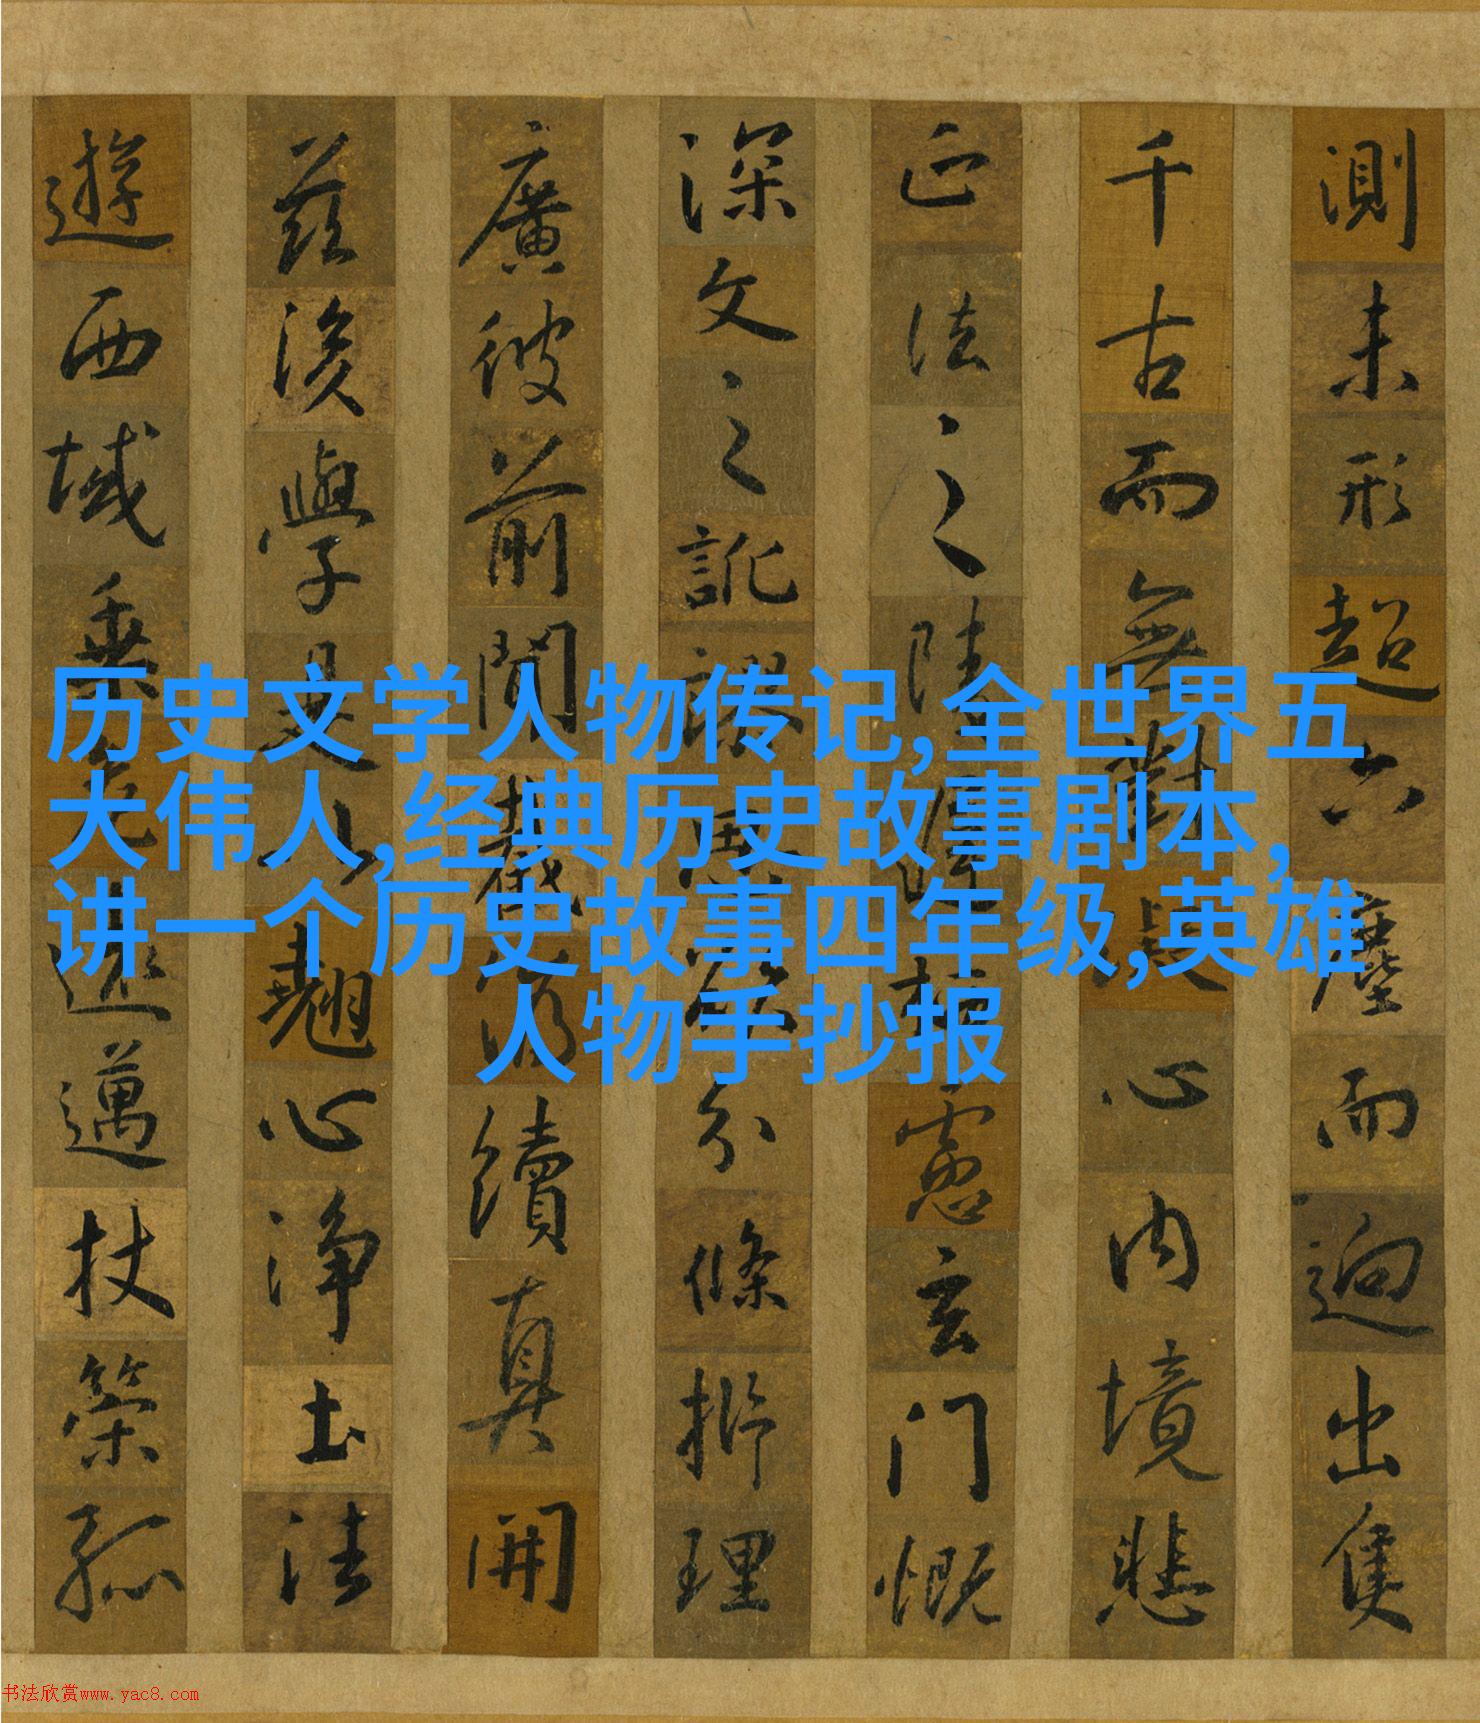 測未形超六塵而迥出隻
千古而無對凝心內境悲
正法之陵遲栖慮玄門慨
深文之訛謬思欲分條析理
廣彼前聞截偽續真開
茲後學是以翹心淨土法
遊西域乘危遠邁杖策孤
历史文学人物传记,全世界五
大伟人,经典历史故事剧本,
讲一个历史故事四年级,英雄
人物手抄报
书法欣赏www.yac8.com